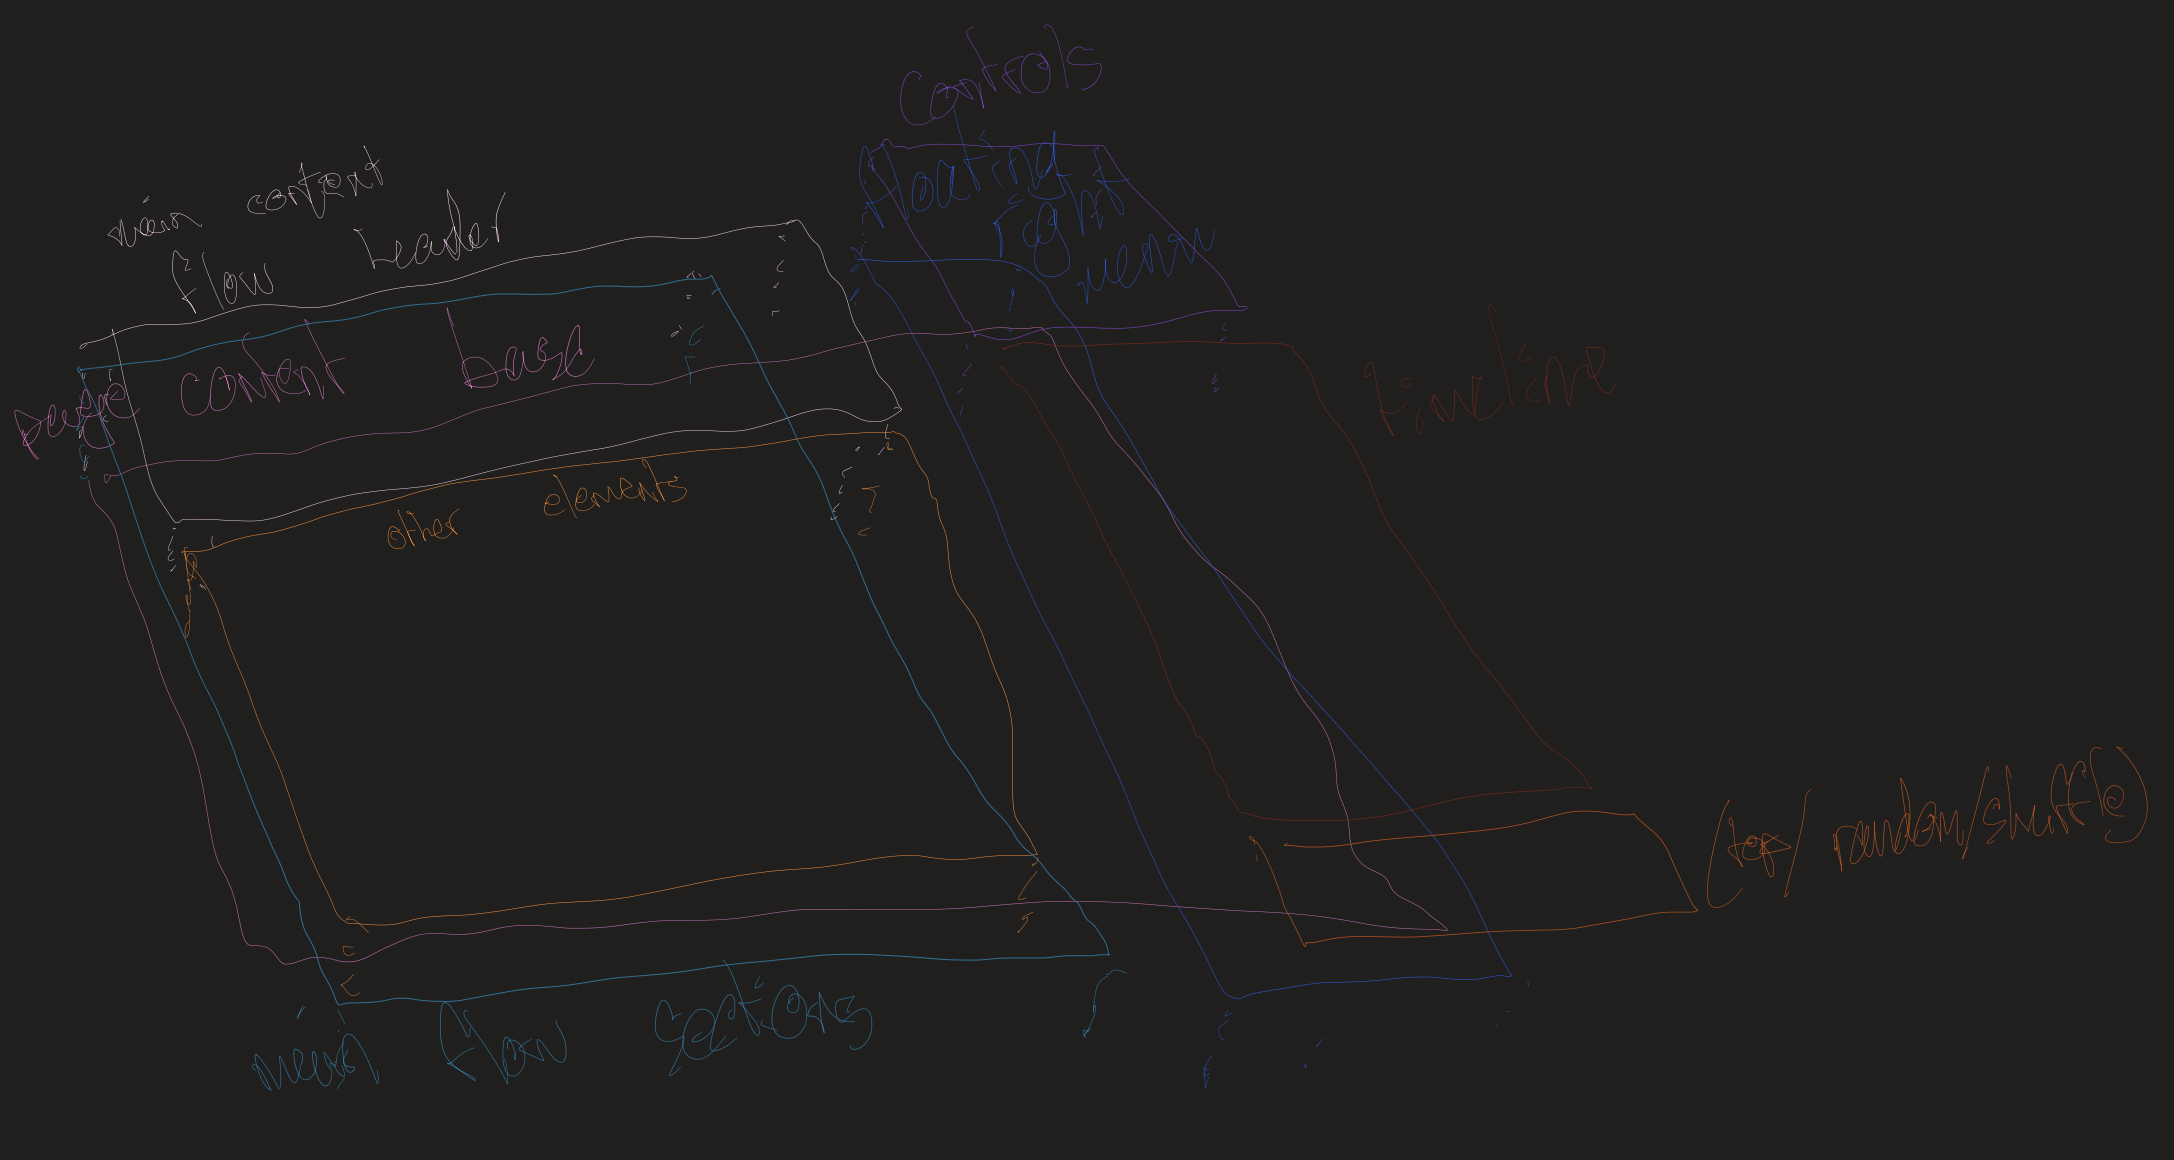 Controls
floating
right
menu
main content
flow header
page content base
timeline
other elements
(top/ random/shuffle)
main flow sections